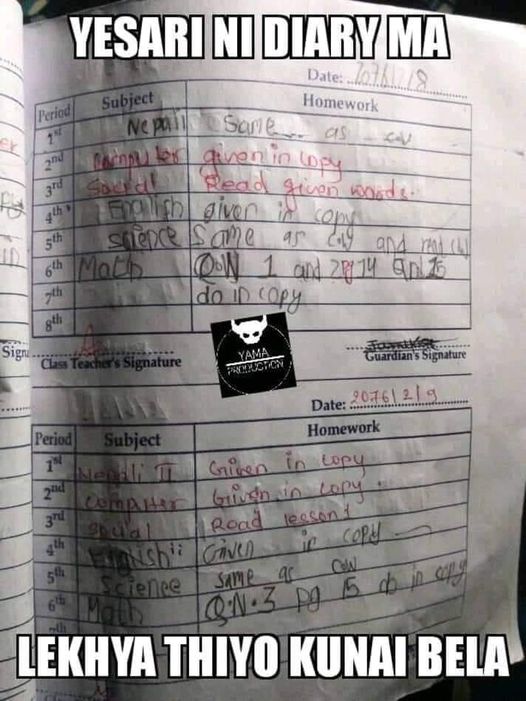 YESARI NI DIARY MA
Date: 2076/2/8
Period Subject Homework
1st Nepali Same as cw
2nd Computer given in copy
3rd Social Read given words.
4th English given in copy
5th science Same as cw and read
6th Math Q.W 1 and 14
7th do in copy
8th
Class Teacher's Signature Guardian's Signature
YAMA
PRODUCTION
Date: 2076/2/9
Period Subject Homework
1st Nepali II Given in copy
2nd computer Given in copy.
3rd social Read lesson 1
4th English Given in copy
5th Science same as cw
6th Math Q.N.3 pg 15 do in copy
LEKHYA THIYO KUNAI BELA